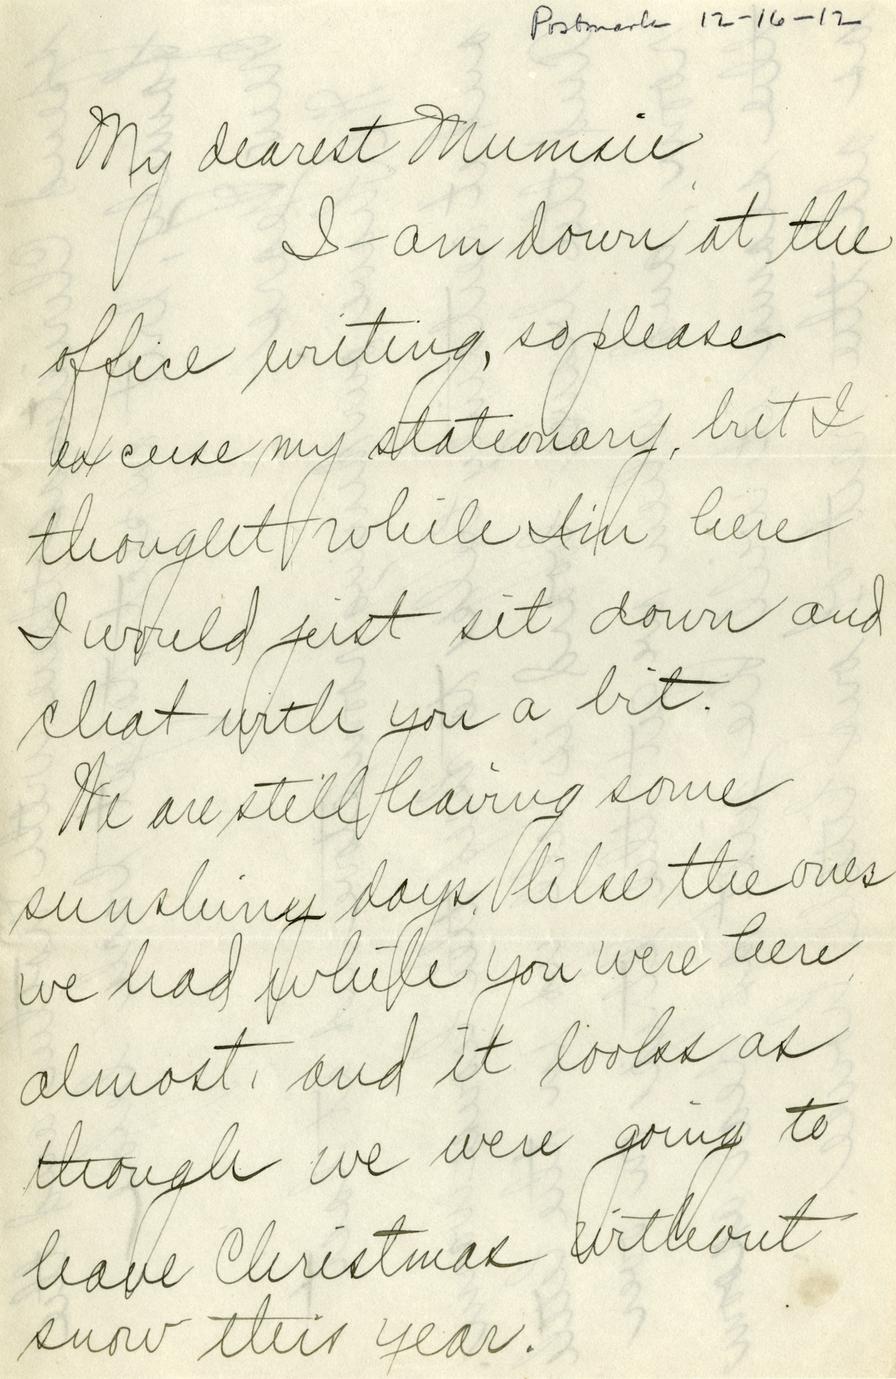 Postmark 12-16-12
My dearest Mumsie,
I am down at the
office writing, so please
excuse my stationary, but I
thought while I'm here
I would just sit down and
chat with you a bit.
We are still having some
sunshiny days, like the ones
we had while you were here,
almost, and it looks as
though we were going to
have Christmas without
snow this year.